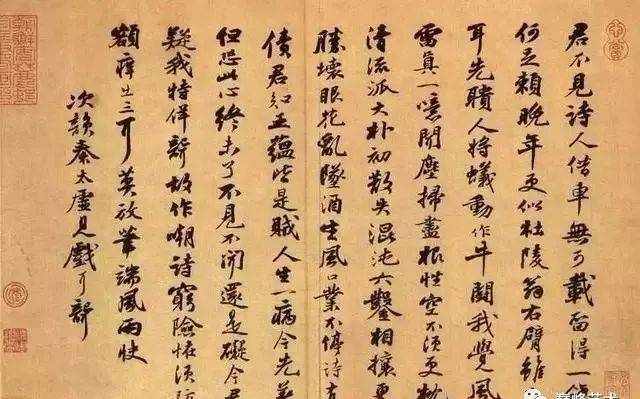 君不見詩人借車無可載留得一錢
何足賴晚年更似杜陵翁右臂雖
耳先聵人將蟻動作牛鬭我覺風
雷真一噫聞塵掃盡根性空不須更枕
清流派大朴初散失混沌六鑿相攘更
勝壞眼花亂墜酒生風口業不停詩有
債君知五蘊皆是賊人生一病今先差
但恐此心終未了不見不聞還是礙今君
疑我特佯聾故作嘲詩窮險怪須防
額痒出三耳莫放筆端風雨快
次韻秦太虛見戲耳聾